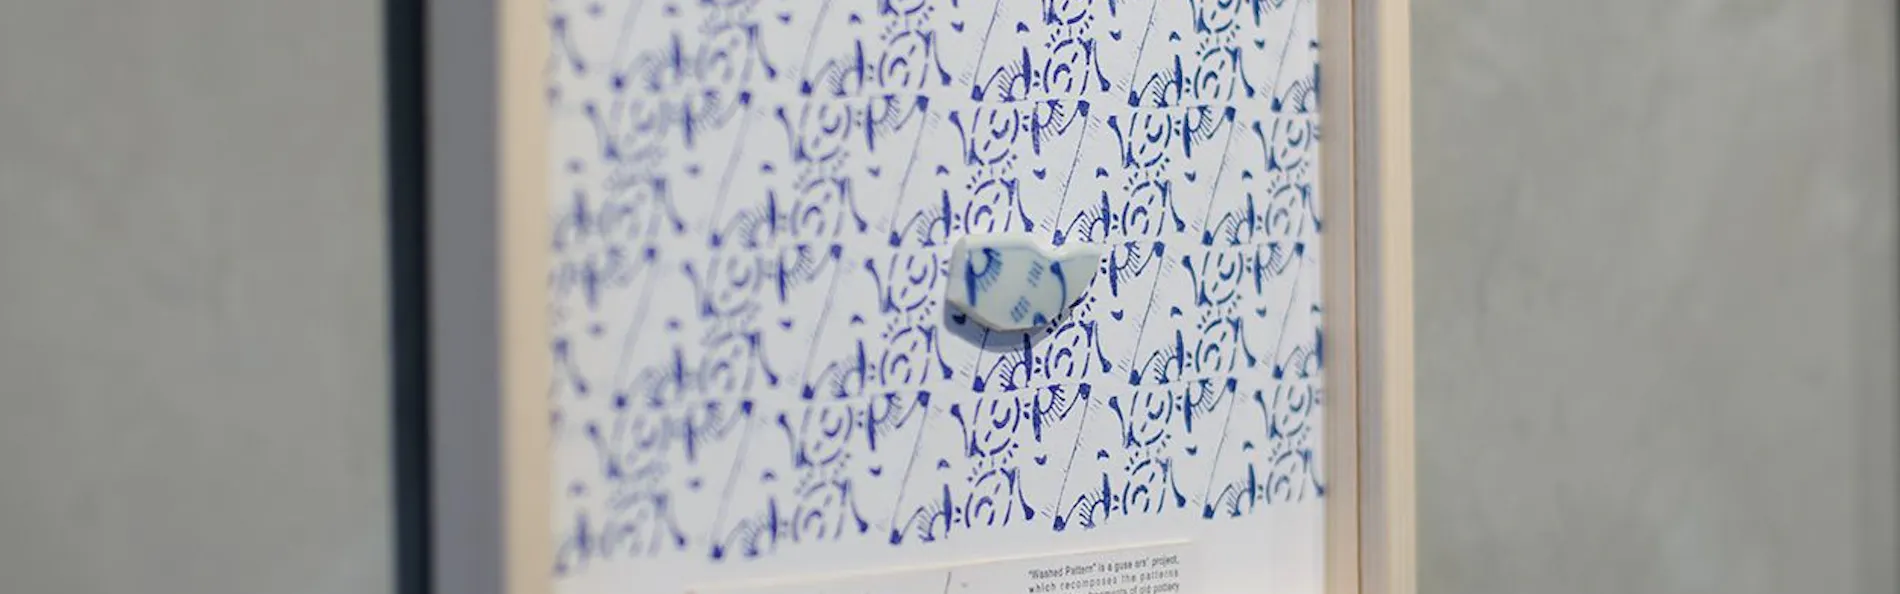 "Washed Pattern" is a guse ars' project,
which recomposes the patterns
fragments of old pottery